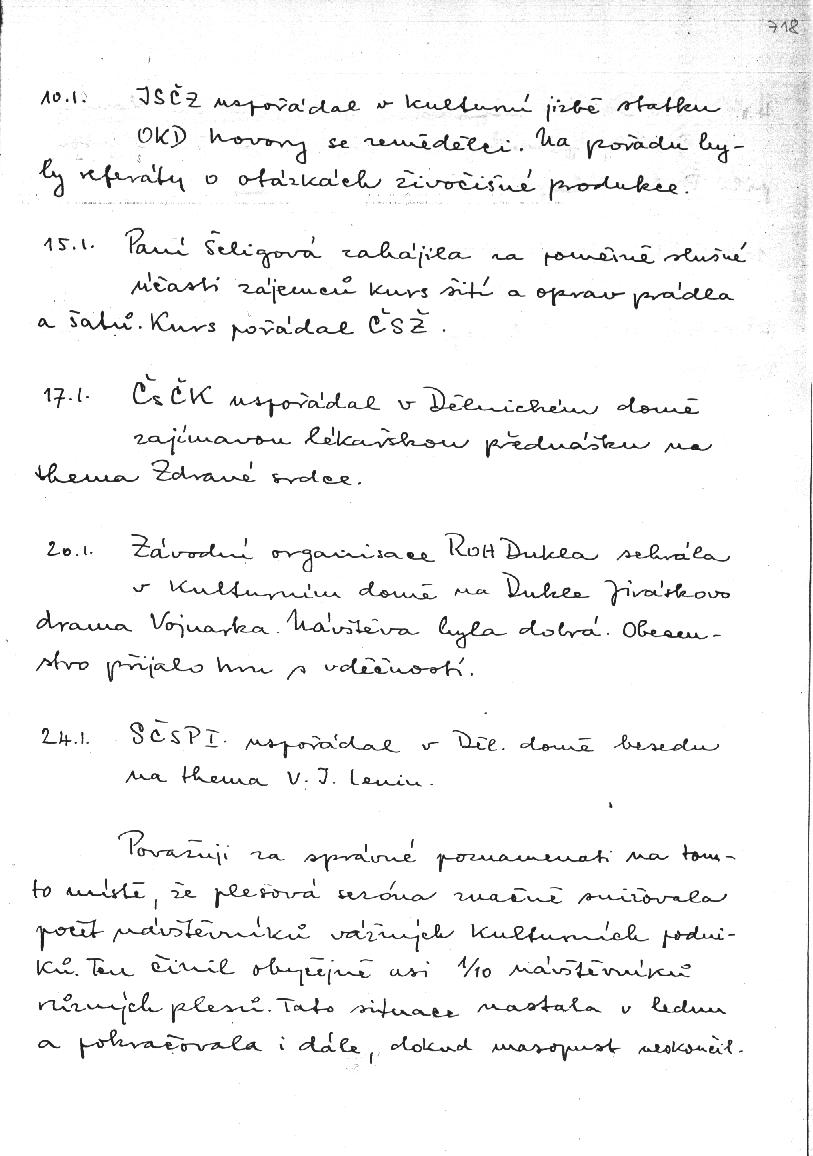 718
10.I. JSČZ uspořádal v kulturní jizbě statku
OKD hovory se zemědělci. Na pořadu by-
ly referáty o otázkách živočišné produkce.
15.I. Paní Šeligová zahájila za poměrně slušné
účasti zájemců kurs šití a oprav prádla
a šatů. Kurs pořádal ČSŽ.
17.I. ČsČK uspořádal v Dělnickém domě
zajímavou lékařskou přednášku na
thema Zdravé srdce.
20.I. Závodní organisace ROH Dukla sehrála
v Kulturním domě na Dukle Jiráskovo
drama Vojnarka. Návštěva byla dobrá. Obecen-
stvo přijalo hru s vděčností.
24.I. SČSPI. uspořádal v Děl. domě besedu
na thema V. I. Lenin.
Považuji za správné poznamenati na tom-
to místě, že plesová sezóna značně snižovala
počet návštěvníků vážných kulturních podni-
ků. Ten činil obyčejně asi 1/10 návštěvníků
různých plesů. Tato situace nastala v lednu
a pokračovala i dále, dokud masopust neskončil.